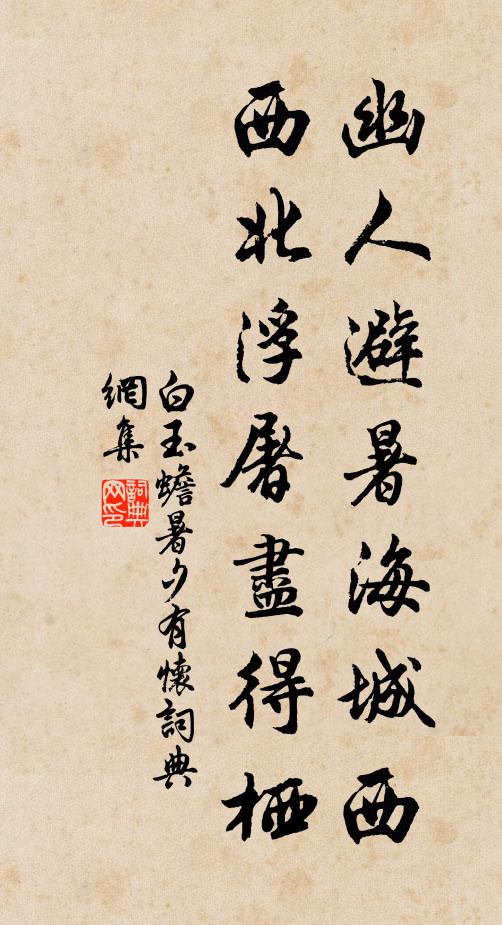 幽人避暑海城西
西北浮屠盡得栖
白玉蟾暑夕有懷詞典
網集
詞典網印